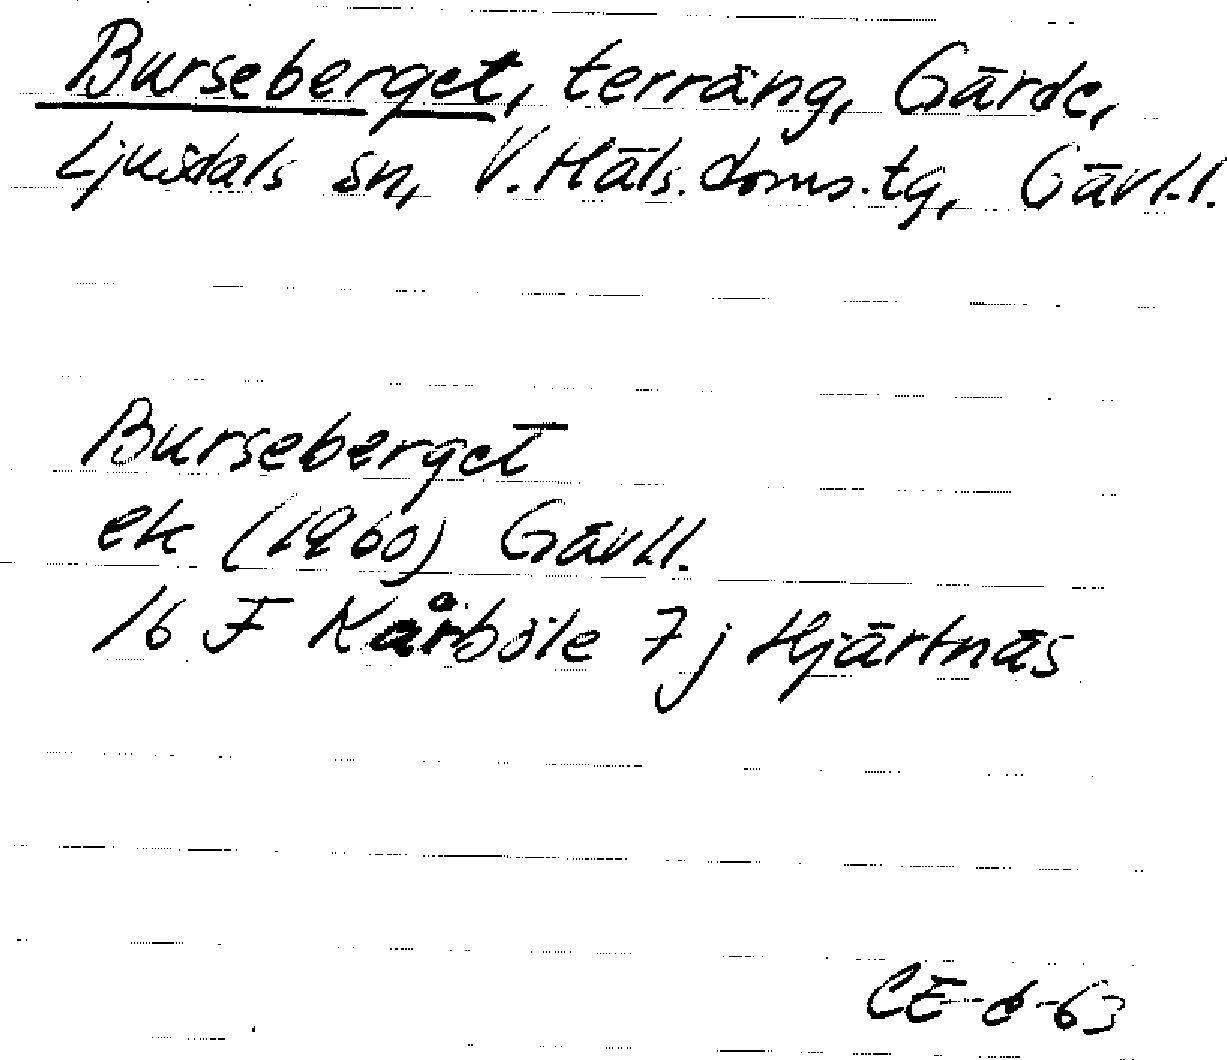 Burseberget, terräng, Gärde,
Ljusdals sn, V. Häls. doms. tg, Gävl.l.
Burseberget
ek (1960) Gävl.l.
16 F Kårböle 7 j Hjärtnäs
CE-6-63